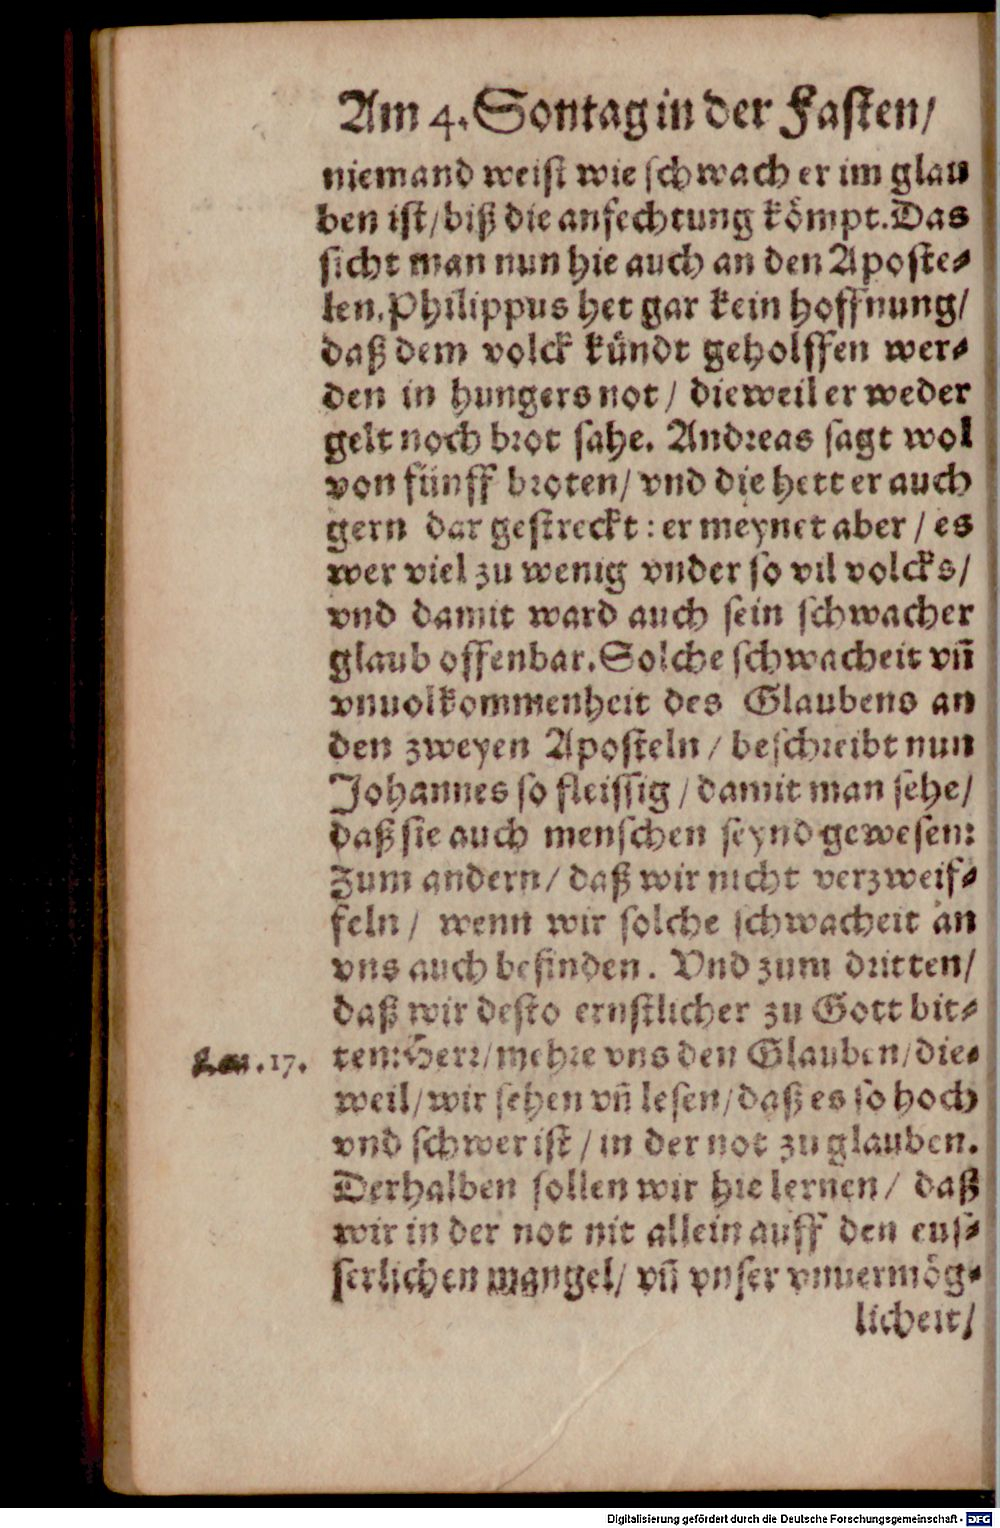 Am 4. Sontag in der Fasten/
niemand weist wie schwach er im glau
ben ist/biß die anfechtung kömpt. Das
sicht man nun hie auch an den Aposte-
len. Philippus het gar kein hoffnung/
daß dem volck kündt geholffen wer-
den in hungers not/ dieweil er weder
gelt noch brot sahe. Andreas sagt wol
von fünff broten/ vnd die hett er auch
gern dar gestreckt: er meynet aber/ es
wer viel zu wenig vnder so vil volcks/
vnd damit ward auch sein schwacher
glaub offenbar. Solche schwacheit vn̄
vnuolkommenheit des Glaubens an
den zweyen Aposteln/ beschreibt nun
Johannes so fleissig/ damit man sehe/
daß sie auch menschen seynd gewesen:
Zum andern/ daß wir nicht verzweif-
feln/ wenn wir solche schwacheit an
vns auch befinden. Vnd zum dritten/
daß wir desto ernstlicher zu Gott bit-
ten: Herr/mehre vns den Glauben/die-
Luc. 17.
weil/wir sehen vn̄ lesen/daß es so hoch
vnd schwer ist/ in der not zu glauben.
Derhalben sollen wir hie lernen/ daß
wir in der not nit allein auff den eus-
serlichen mangel/ vn̄ vnser vnuermög-
licheit/
Digitalisierung gefördert durch die Deutsche Forschungsgemeinschaft - DFG